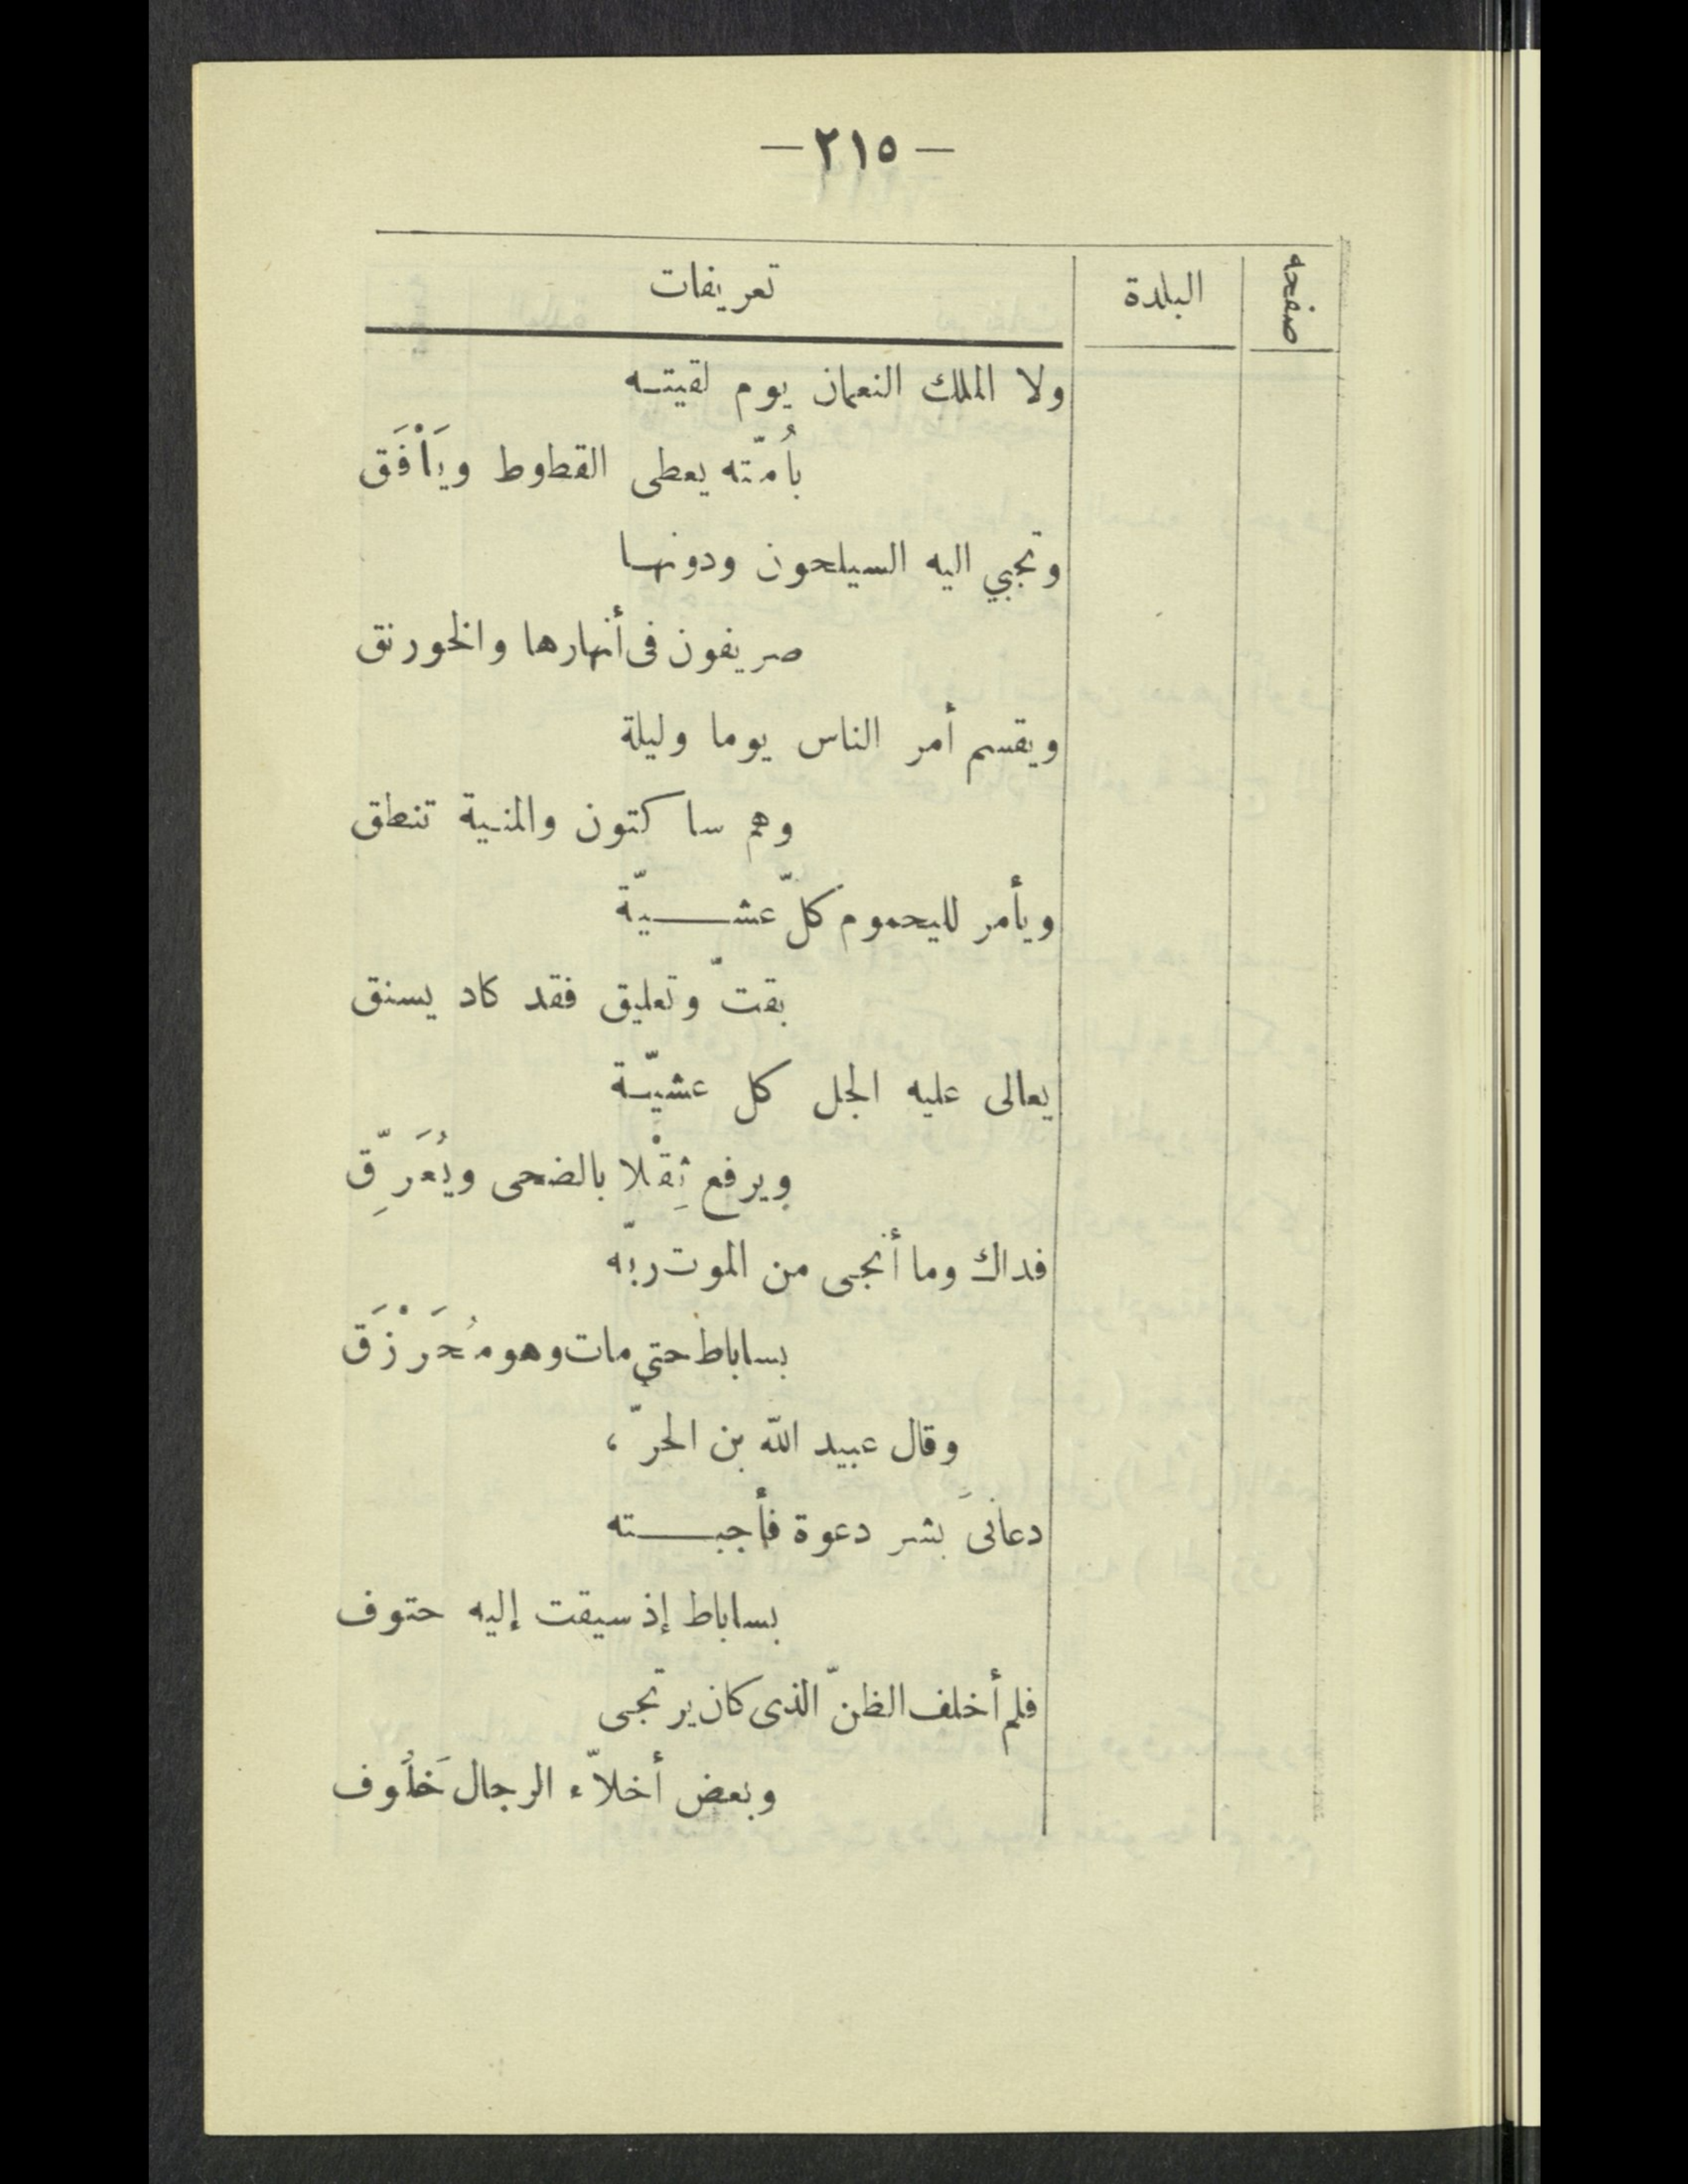 — ٢١٥ —
صفحه البلدة تعريفات
ولا الملك النعمان يوم لقيته
بأُمّته يعطى القطوط ويَاْفَق
وتجبي اليه السيلحون ودونها
صريفون فى أنهارها والخورنق
ويقسم أمر الناس يوما وليلة
وهم ساكتون والمنية تنطق
ويأمر لليحموم كلّ عشيّة
بقتّ وتعليق فقد كاد يسنق
يعالى عليه الجل كل عشيّة
ويرفع ثِقْلا بالضحى ويُعَرِّق
فداك وما أنجى من الموت ربّه
بساباط حتي مات وهو مُحَرْزَق
وقال عبيد الله بن الحرّ ،
دعانىَ بشر دعوة فأجبته
بساباط إذ سيقت إليه حتوف
فلم أخلف الظنّ الذى كان يرتجى
وبعض أخلاّء الرجال خَلُوف